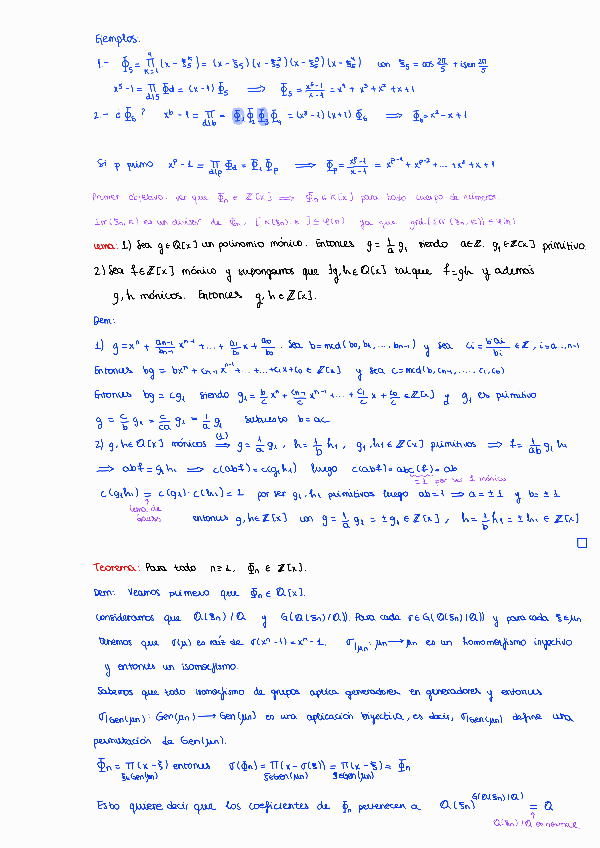 Ejemplos:
1.- Φ₅ = ∏_{k=1}^{4} (x − ξ₅ᵏ) = (x − ξ₅)(x − ξ₅²)(x − ξ₅³)(x − ξ₅⁴) con ξ₅ = cos 2π/5 + i sen 2π/5
x⁵ − 1 = ∏_{d|5} Φd = (x − 1) Φ₅ ⟹ Φ₅ = x⁵−1/x−1 = x⁴ + x³ + x² + x + 1
2.- c Φ₆? x⁶ − 1 = ∏_{d|6} = Φ₁ Φ₂ Φ₃ Φ₆ = (x³−1)(x+1) Φ₆ ⟹ Φ₆ = x² − x + 1
Si p primo x^p − 1 = ∏_{d|p} Φd = Φ₁ Φp ⟹ Φp = x^p−1/x−1 = x^{p−1} + x^{p−2} + ... + x² + x + 1
Primer objetivo: ver que Φn ∈ ℤ[x] ⟹ Φn ∈ K[x] para todo cuerpo de números
Irr(ξn, K) es un divisor de Φn, [K(ξn):K] ≤ φ(n) ya que grd(Irr(ξn, K)) ≤ φ(n)
Lema: 1) Sea g ∈ ℚ[x] un polinomio mónico. Entonces g = 1/a g₁ siendo a ∈ ℤ. g₁ ∈ ℤ[x] primitivo.
2) Sea f ∈ ℤ[x] mónico y supongamos que ∃g, h ∈ ℚ[x] tal que f = gh y además
g, h mónicos. Entonces g, h ∈ ℤ[x].
Dem:
1) g = xⁿ + an−1/bn−1 xⁿ⁻¹ + ... + a₁/b₁ x + a₀/b₀. Sea b = mcd(b₀, b₁, ... bn−1) y sea ci = b·ai/bi ∈ ℤ, i = 0...n−1
Entonces bg = bxⁿ + cn−1 xⁿ⁻¹ + ... + c₁x + c₀ ∈ ℤ[x] y sea c = mcd(b, cn−1, ..., c₁, c₀)
Entonces bg = cg₁ siendo g₁ = b/c xⁿ + cn−1/c xⁿ⁻¹ + ... + c₁/c x + c₀/c ∈ ℤ[x] y g₁ es primitivo
g = c/b g₁ = c/ca g₁ = 1/a g₁ supuesto b = ac
2) g, h ∈ ℚ[x] mónicos ⟹(1) g = 1/a g₁, h = 1/b h₁, g₁, h₁ ∈ ℤ[x] primitivos ⟹ f = 1/ab g₁ h₁
⟹ abf = g₁h₁ ⟹ c(abf) = c(g₁h₁) luego c(abf) = abc(f) = ab
= ±1 por ser 1 mónico
c(g₁h₁) = c(g₁)·c(h₁) = 1 por ser g₁, h₁ primitivos luego ab = 1 ⟹ a = ±1 y b = ±1
lema de Gauss
entonces g, h ∈ ℤ[x] con g = 1/a g₁ = ±g₁ ∈ ℤ[x], h = 1/b h₁ = ±h₁ ∈ ℤ[x]
□
Teorema: Para todo n ≥ 1, Φn ∈ ℤ[x].
Dem: Veamos primero que Φn ∈ ℚ[x].
Consideramos que ℚ(ξn)/ℚ y G(ℚ(ξn)/ℚ). Para cada σ ∈ G(ℚ(ξn)/ℚ) y para cada ξ ∈ μn
tenemos que σ(μ) es raíz de σ(xⁿ−1) = xⁿ−1. σ|μn: μn → μn es un homomorfismo inyectivo
y entonces un isomorfismo.
Sabemos que todo isomorfismo de grupos aplica generadores en generadores y entonces
σ|Gen(μn): Gen(μn) → Gen(μn) es una aplicación biyectiva, es decir, σ|Gen(μn) define una
permutación de Gen(μn).
Φn = ∏(x − ξ) entonces σ(Φn) = ∏(x − σ(ξ)) = ∏(x − ξ) = Φn
ξ∈Gen(μn) ξ∈Gen(μn) ξ∈Gen(μn)
Esto quiere decir que los coeficientes de Φn pertenecen a ℚ(ξn)^{G(ℚ(ξn)/ℚ)} = ℚ
ℚ(ξn)/ℚ es normal